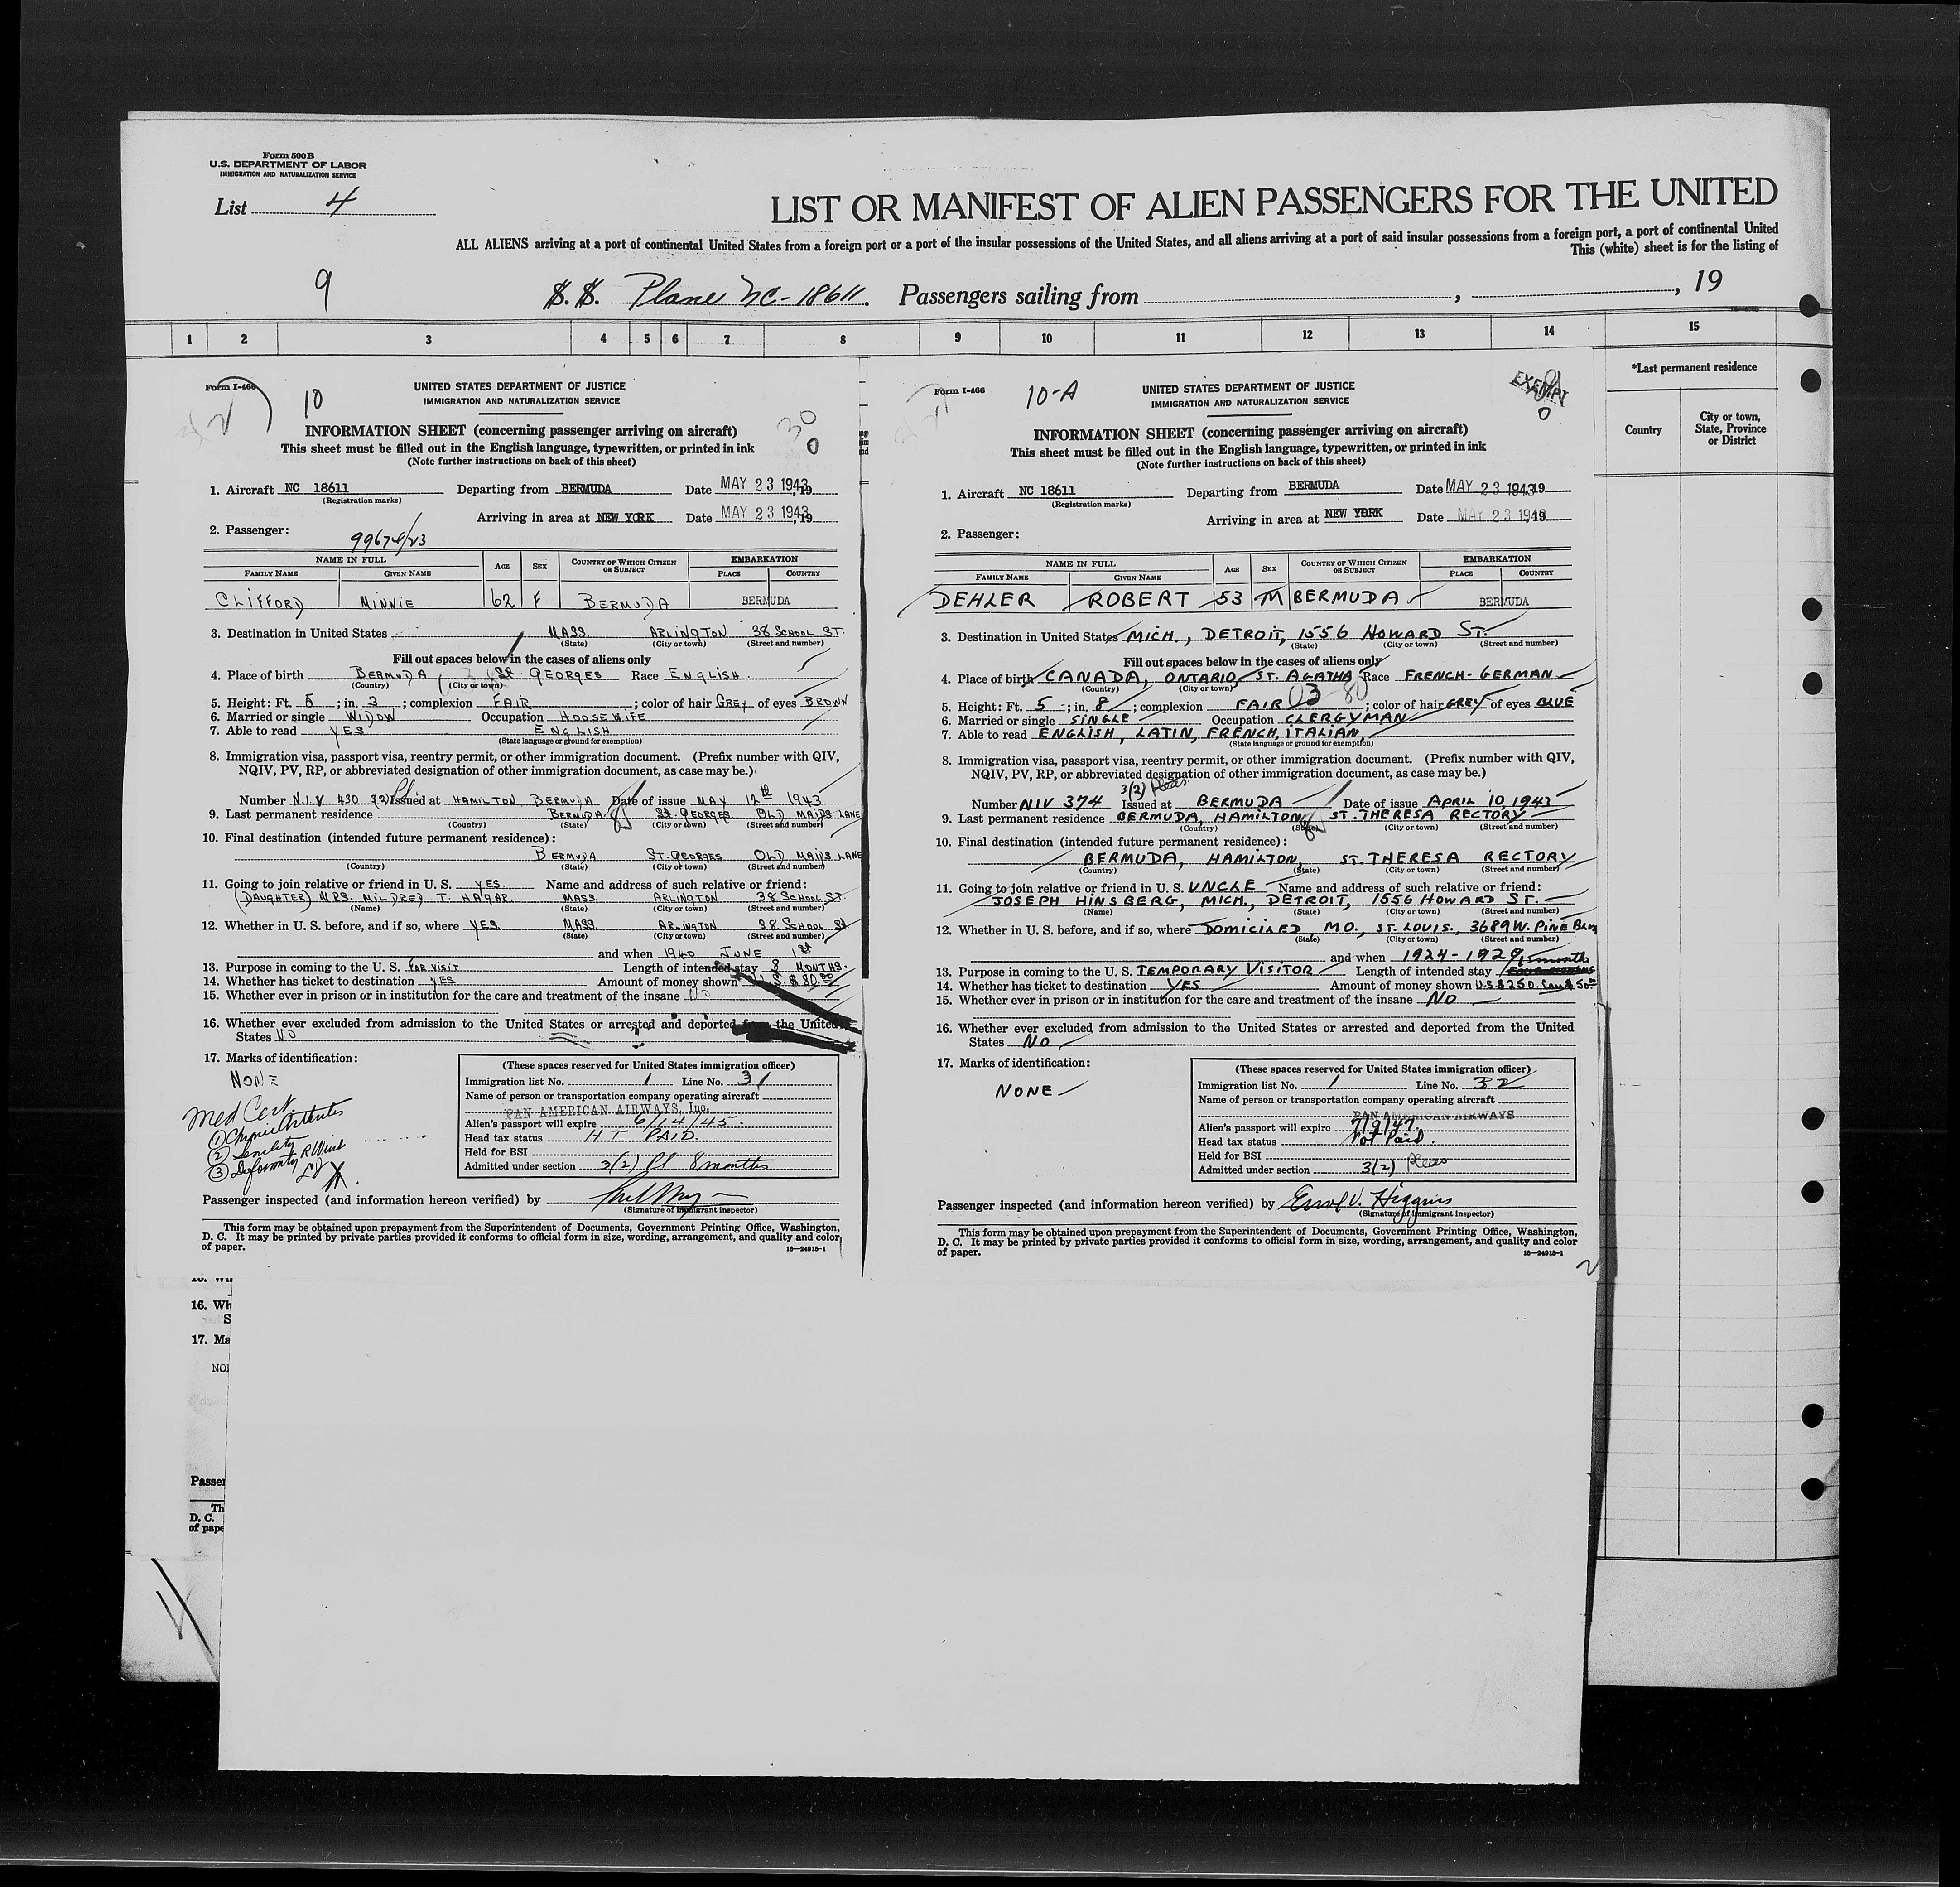 Form 500 B
U.S. DEPARTMENT OF LABOR
IMMIGRATION AND NATURALIZATION SERVICE
List 4
LIST OR MANIFEST OF ALIEN PASSENGERS FOR THE UNITED
ALL ALIENS arriving at a port of continental United States from a foreign port or a port of the insular possessions of the United States, and all aliens arriving at a port of said insular possessions from a foreign port, a port of continental United
This (white) sheet is for the listing of
9 S.S. Plane NC-18611. Passengers sailing from , , 19
1 2 3 4 5 6 7 8 9 10 11 12 13 14 15
*Last permanent residence
Country
City or town, State, Province or District
Form I-466
10
UNITED STATES DEPARTMENT OF JUSTICE
IMMIGRATION AND NATURALIZATION SERVICE
30
0
INFORMATION SHEET (concerning passenger arriving on aircraft)
This sheet must be filled out in the English language, typewritten, or printed in ink
(Note further instructions on back of this sheet)
1. Aircraft NC 18611 Departing from BERMUDA Date MAY 23 1943, 19
(Registration marks)
Arriving in area at NEW YORK Date MAY 23 1943, 19
2. Passenger:
99674/23
NAME IN FULL AGE SEX COUNTRY OF WHICH CITIZEN OR SUBJECT EMBARKATION
FAMILY NAME GIVEN NAME PLACE COUNTRY
CLIFFORD MINNIE 62 F BERMUDA BERMUDA
3. Destination in United States MASS. ARLINGTON 38 SCHOOL ST.
(State) (City or town) (Street and number)
Fill out spaces below in the cases of aliens only
4. Place of birth BERMUDA St. GEORGES Race ENGLISH.
(Country) (City or town)
5. Height: Ft. 5; in. 3; complexion FAIR; color of hair GREY of eyes BROWN
6. Married or single WIDOW Occupation HOUSEWIFE
7. Able to read YES ENGLISH
(State language or ground for exemption)
8. Immigration visa, passport visa, reentry permit, or other immigration document. (Prefix number with QIV,
NQIV, PV, RP, or abbreviated designation of other immigration document, as case may be.)
Number N.I.V 430 3(2) Pl Issued at HAMILTON BERMUDA Date of issue MAY 12th 1943
9. Last permanent residence BERMUDA St. GEORGES OLD MAIDS LANE
(Country) (State) (City or town) (Street and number)
10. Final destination (intended future permanent residence):
BERMUDA ST. GEORGES OLD MAIDS LANE
(Country) (State) (City or town) (Street and number)
11. Going to join relative or friend in U. S. YES. Name and address of such relative or friend:
(DAUGHTER) MRS. MILDRED T. HAGAR MASS. ARLINGTON 38 SCHOOL ST.
(Name) (State) (City or town) (Street and number)
12. Whether in U. S. before, and if so, where YES MASS ARLINGTON 38 SCHOOL St
(State) (City or town) (Street and number)
and when 1940 JUNE 1st
13. Purpose in coming to the U. S. FOR VISIT Length of intended stay 8 MONTHS.
14. Whether has ticket to destination YES Amount of money shown U.S. $80.00
15. Whether ever in prison or in institution for the care and treatment of the insane NO
16. Whether ever excluded from admission to the United States or arrested and deported from the United
States NO
17. Marks of identification:
NONE
Med Cert
① Chronic Arthritis
② Senility
③ Deformity R Wrist
(These spaces reserved for United States immigration officer)
Immigration list No. 1 Line No. 31
Name of person or transportation company operating aircraft
PAN AMERICAN AIRWAYS, Inc.
Alien's passport will expire 6/14/45.
Head tax status H T PAID.
Held for BSI
Admitted under section 3(2) Pl 8 months
Passenger inspected (and information hereon verified) by
(Signature of immigrant inspector)
This form may be obtained upon prepayment from the Superintendent of Documents, Government Printing Office, Washington,
D. C. It may be printed by private parties provided it conforms to official form in size, wording, arrangement, and quality and color
of paper.
16—24915-1
Form I-466
10-A
UNITED STATES DEPARTMENT OF JUSTICE
IMMIGRATION AND NATURALIZATION SERVICE
EXEMPT
0
INFORMATION SHEET (concerning passenger arriving on aircraft)
This sheet must be filled out in the English language, typewritten, or printed in ink
(Note further instructions on back of this sheet)
1. Aircraft NC 18611 Departing from BERMUDA Date MAY 23 1943, 19
(Registration marks)
Arriving in area at NEW YORK Date MAY 23 1943, 19
2. Passenger:
NAME IN FULL AGE SEX COUNTRY OF WHICH CITIZEN OR SUBJECT EMBARKATION
FAMILY NAME GIVEN NAME PLACE COUNTRY
DEHLER ROBERT 53 M BERMUDA BERMUDA
3. Destination in United States MICH., DETROIT, 1556 HOWARD ST.
(State) (City or town) (Street and number)
Fill out spaces below in the cases of aliens only
4. Place of birth CANADA, ONTARIO, ST. AGATHA Race FRENCH-GERMAN
(Country) (City or town)
03-80
5. Height: Ft. 5; in. 8; complexion FAIR; color of hair GREY of eyes BLUE
6. Married or single SINGLE Occupation CLERGYMAN
7. Able to read ENGLISH, LATIN, FRENCH, ITALIAN,
(State language or ground for exemption)
8. Immigration visa, passport visa, reentry permit, or other immigration document. (Prefix number with QIV,
NQIV, PV, RP, or abbreviated designation of other immigration document, as case may be.)
3(2) Pleas
Number NIV 374 Issued at BERMUDA Date of issue APRIL 10, 1943
9. Last permanent residence BERMUDA, HAMILTON, ST. THERESA RECTORY
(Country) (State) (City or town) (Street and number)
10. Final destination (intended future permanent residence):
BERMUDA, HAMILTON, ST. THERESA RECTORY
(Country) (State) (City or town) (Street and number)
11. Going to join relative or friend in U. S. UNCLE Name and address of such relative or friend:
JOSEPH HINSBERG, MICH., DETROIT, 1556 HOWARD ST.
(Name) (State) (City or town) (Street and number)
12. Whether in U. S. before, and if so, where DOMICILED, MO., ST. LOUIS., 3689 W. PINE BLVD
(State) (City or town) (Street and number)
and when 1924-1928
13. Purpose in coming to the U. S. TEMPORARY VISITOR Length of intended stay months
14. Whether has ticket to destination YES Amount of money shown U.S. $250. Can $50.00
15. Whether ever in prison or in institution for the care and treatment of the insane NO
16. Whether ever excluded from admission to the United States or arrested and deported from the United
States NO
17. Marks of identification:
NONE
(These spaces reserved for United States immigration officer)
Immigration list No. 1 Line No. 32
Name of person or transportation company operating aircraft
PAN AMERICAN AIRWAYS
Alien's passport will expire 7/9/47.
Head tax status Not Paid.
Held for BSI
Admitted under section 3(2) Pleas
Passenger inspected (and information hereon verified) by Errol V. Higgins
(Signature of immigrant inspector)
This form may be obtained upon prepayment from the Superintendent of Documents, Government Printing Office, Washington,
D. C. It may be printed by private parties provided it conforms to official form in size, wording, arrangement, and quality and color
of paper.
16—24915-1
16. Wh
S
17. Ma
NO
Passe
Th
D. C.
of pape